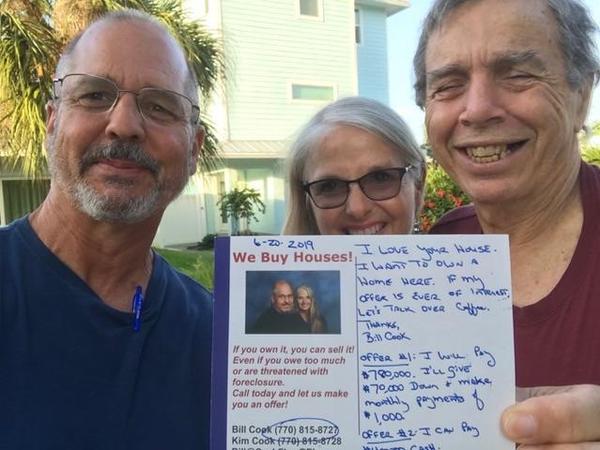 6-20-2019
We Buy Houses!
If you own it, you can sell it!
Even if you owe too much
or are threatened with
foreclosure.
Call today and let us make
you an offer!
Bill Cook (770) 815-8727
Kim Cook (770) 815-8728
I LOVE YOUR HOUSE.
I WANT TO OWN A
HOME HERE. IF MY
OFFER IS EVER OF INTEREST,
LET'S TALK OVER COFFEE.
THANKS,
Bill Cook
OFFER #1: I WILL PAY
$780,000. I'LL GIVE
$70,000 DOWN & MAKE
MONTHLY PAYMENTS OF
$1,000.
OFFER #2: I CAN PAY